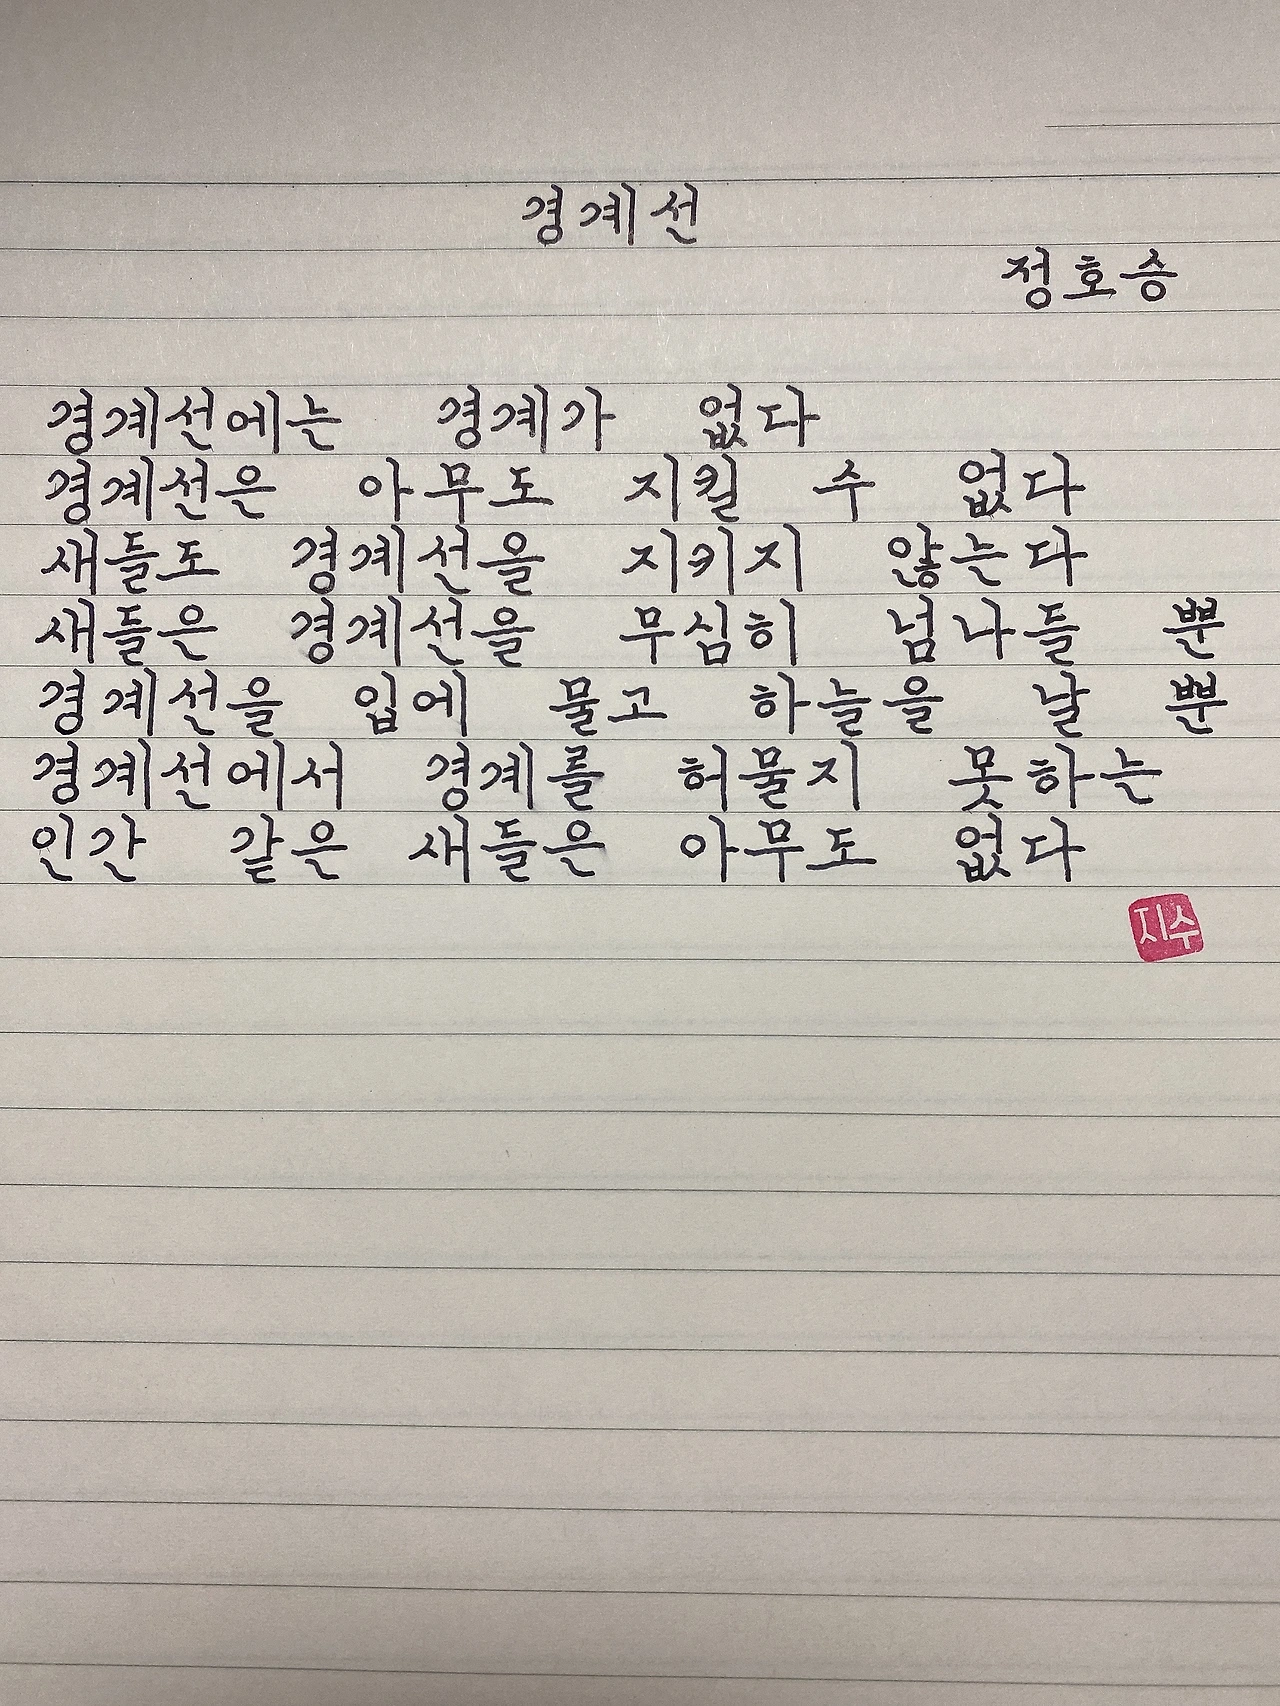 경계선
정호승
경계선에는 경계가 없다
경계선은 아무도 지킬 수 없다
새들도 경계선을 지키지 않는다
새들은 경계선을 무심히 넘나들 뿐
경계선을 입에 물고 하늘을 날 뿐
경계선에서 경계를 허물지 못하는
인간 같은 새들은 아무도 없다
지수